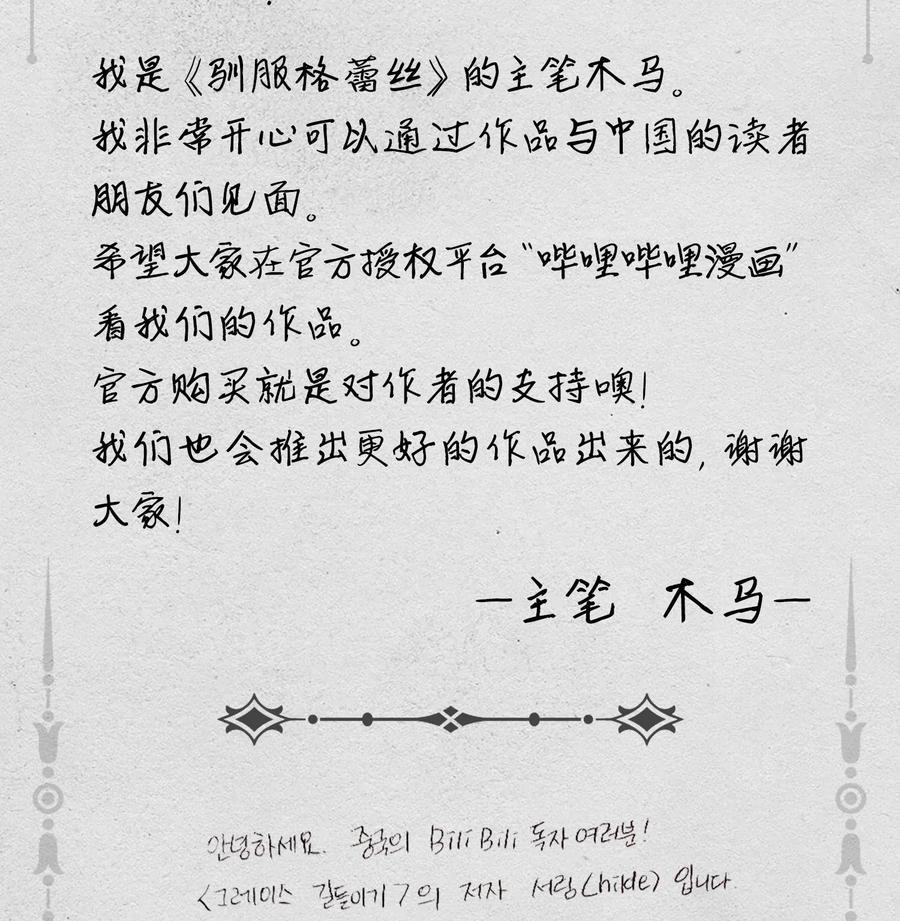 我是《驯服格蕾丝》的主笔木马。
我非常开心可以通过作品与中国的读者
朋友们见面。
希望大家在官方授权平台“哔哩哔哩漫画”
看我们的作品。
官方购买就是对作者的支持噢!
我们也会推出更好的作品出来的, 谢谢
大家!
—主笔 木马—
안녕하세요. 중국의 BiliBili 독자 여러분!
<그레이스 길들이기>의 저자 서람(hilde) 입니다.